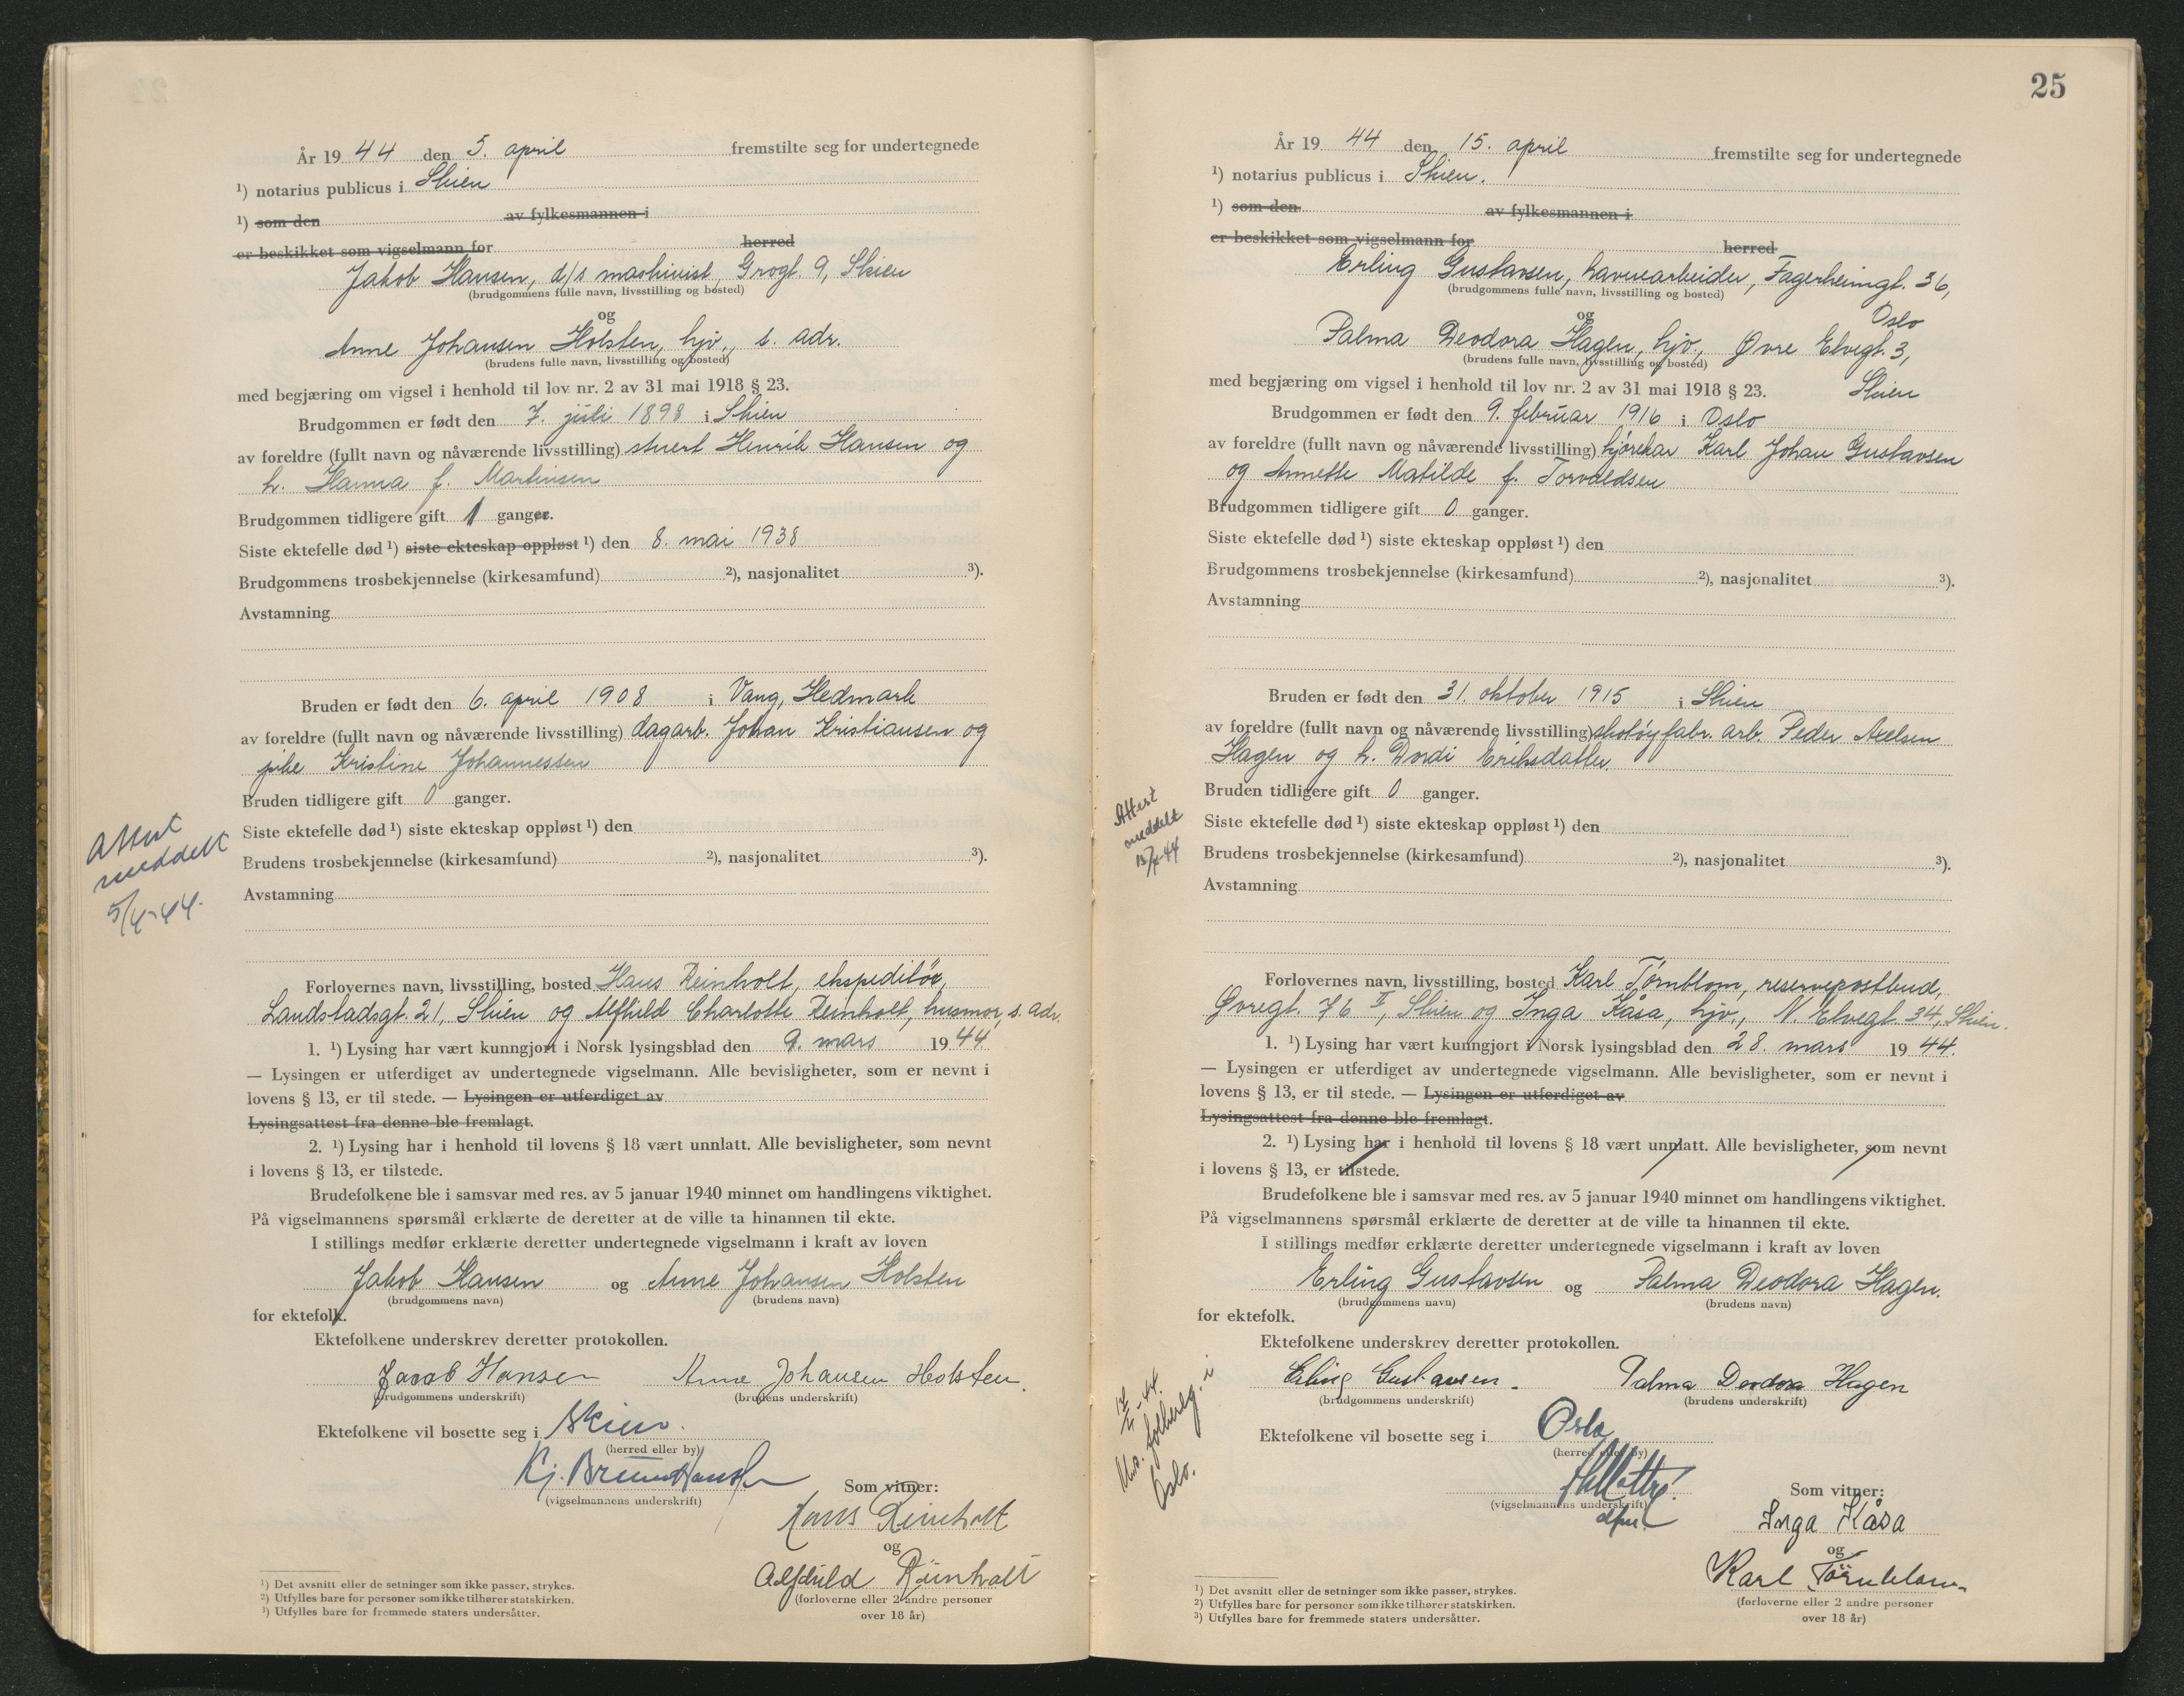 År 19 44 den 5. april fremstilte seg for undertegnede
¹) notarius publicus i Skien
¹) som den av fylkesmannen i
er beskikket som vigselmann for herred
Jakob Hansen, d/s maskinist, Grogt. 9, Skien
(brudgommens fulle navn, livsstilling og bosted)
og
Anne Johansen Holsten, hjv., s. adr.
(brudens fulle navn, livsstilling og bosted)
med begjæring om vigsel i henhold til lov nr. 2 av 31 mai 1918 § 23.
Brudgommen er født den 7. juli 1898 i Skien
av foreldre (fullt navn og nåværende livsstilling) stuert Henrik Hansen og
h. Hanna f. Martinsen
Brudgommen tidligere gift 1 ganger.
Siste ektefelle død ¹) siste ekteskap oppløst ¹) den 8. mai 1938
Brudgommens trosbekjennelse (kirkesamfund) ²), nasjonalitet ³).
Avstamning
Bruden er født den 6. april 1908 i Vang, Hedmark
av foreldre (fullt navn og nåværende livsstilling) dagarb. Johan Kristiansen og
pike Kristine Johannessen
Bruden tidligere gift 0 ganger.
Siste ektefelle død ¹) siste ekteskap oppløst ¹) den
Brudens trosbekjennelse (kirkesamfund) ²), nasjonalitet ³).
Avstamning
Attest
meddelt
5/4-44.
Forlovernes navn, livsstilling, bosted Hans Reinholt, ekspeditör,
Landstadsgt. 21, Skien og Alfhild Charlotte Reinholt, husmor, s. adr.
1. ¹) Lysing har vært kunngjort i Norsk lysingsblad den 9. mars 19 44
— Lysingen er utferdiget av undertegnede vigselmann. Alle bevisligheter, som er nevnt i
lovens § 13, er til stede. — Lysingen er utferdiget av
Lysingsattest fra denne ble fremlagt.
2. ¹) Lysing har i henhold til lovens § 18 vært unnlatt. Alle bevisligheter, som nevnt
i lovens § 13, er tilstede.
Brudefolkene ble i samsvar med res. av 5 januar 1940 minnet om handlingens viktighet.
På vigselmannens spørsmål erklærte de deretter at de ville ta hinannen til ekte.
I stillings medfør erklærte deretter undertegnede vigselmann i kraft av loven
Jakob Hansen og Anne Johansen Holsten
(brudgommens navn) (brudens navn)
for ektefolk.
Ektefolkene underskrev deretter protokollen.
Jacob Hansen Anne Johansen Holsten.
(brudgommens underskrift) (brudens underskrift)
Ektefolkene vil bosette seg i Skien.
(herred eller by)
(vigselmannens underskrift) Som vitner:
Hans Reinholt
og
Alfhild Reinholt
(forloverne eller 2 andre personer
over 18 år)
¹) Det avsnitt eller de setninger som ikke passer, strykes.
²) Utfylles bare for personer som ikke tilhører statskirken.
³) Utfylles bare for fremmede staters undersåtter.
25
År 19 44 den 15. april fremstilte seg for undertegnede
¹) notarius publicus i Skien.
¹) som den av fylkesmannen i
er beskikket som vigselmann for herred
Erling Gustavsen, havnearbeider, Fagerheimgt. 36,
(brudgommens fulle navn, livsstilling og bosted)
og Oslo
Palma Deodora Hagen, hjv., Øvre Elvegt. 3,
(brudens fulle navn, livsstilling og bosted)
med begjæring om vigsel i henhold til lov nr. 2 av 31 mai 1918 § 23. Skien
Brudgommen er født den 9. februar 1916 i Oslo
av foreldre (fullt navn og nåværende livsstilling) kjørekar Karl Johan Gustavsen
og Annette Matilde f. Torvaldsen
Brudgommen tidligere gift 0 ganger.
Siste ektefelle død ¹) siste ekteskap oppløst ¹) den
Brudgommens trosbekjennelse (kirkesamfund) ²), nasjonalitet ³).
Avstamning
Bruden er født den 31. oktober 1915 i Skien
av foreldre (fullt navn og nåværende livsstilling) skotøyfabr. arb. Peder Axelsen
Hagen og h. Dordi Eriksdatter.
Bruden tidligere gift 0 ganger.
Siste ektefelle død ¹) siste ekteskap oppløst ¹) den
Brudens trosbekjennelse (kirkesamfund) ²), nasjonalitet ³).
Avstamning
Attest
meddelt
15/4-44
Forlovernes navn, livsstilling, bosted Karl Törnblom, reservepostbud,
Øvregt. 76 II, Skien og Inga Kåsa, hjv., N. Elvegt. 34, Skien.
1. ¹) Lysing har vært kunngjort i Norsk lysingsblad den 28. mars 19 44.
— Lysingen er utferdiget av undertegnede vigselmann. Alle bevisligheter, som er nevnt i
lovens § 13, er til stede. — Lysingen er utferdiget av
Lysingsattest fra denne ble fremlagt.
2. ¹) Lysing har i henhold til lovens § 18 vært unnlatt. Alle bevisligheter, som nevnt
i lovens § 13, er tilstede.
Brudefolkene ble i samsvar med res. av 5 januar 1940 minnet om handlingens viktighet.
På vigselmannens spørsmål erklærte de deretter at de ville ta hinannen til ekte.
I stillings medfør erklærte deretter undertegnede vigselmann i kraft av loven
Erling Gustavsen og Palma Deodora Hagen.
(brudgommens navn) (brudens navn)
for ektefolk.
Ektefolkene underskrev deretter protokollen.
Erling Gustavsen. Palma Deodora Hagen
(brudgommens underskrift) (brudens underskrift)
Ektefolkene vil bosette seg i Oslo
(herred eller by)
Oslo.
(vigselmannens underskrift) Som vitner:
Inga Kåsa
og
Karl Törnblom
(forloverne eller 2 andre personer
over 18 år)
¹) Det avsnitt eller de setninger som ikke passer, strykes.
²) Utfylles bare for personer som ikke tilhører statskirken.
³) Utfylles bare for fremmede staters undersåtter.